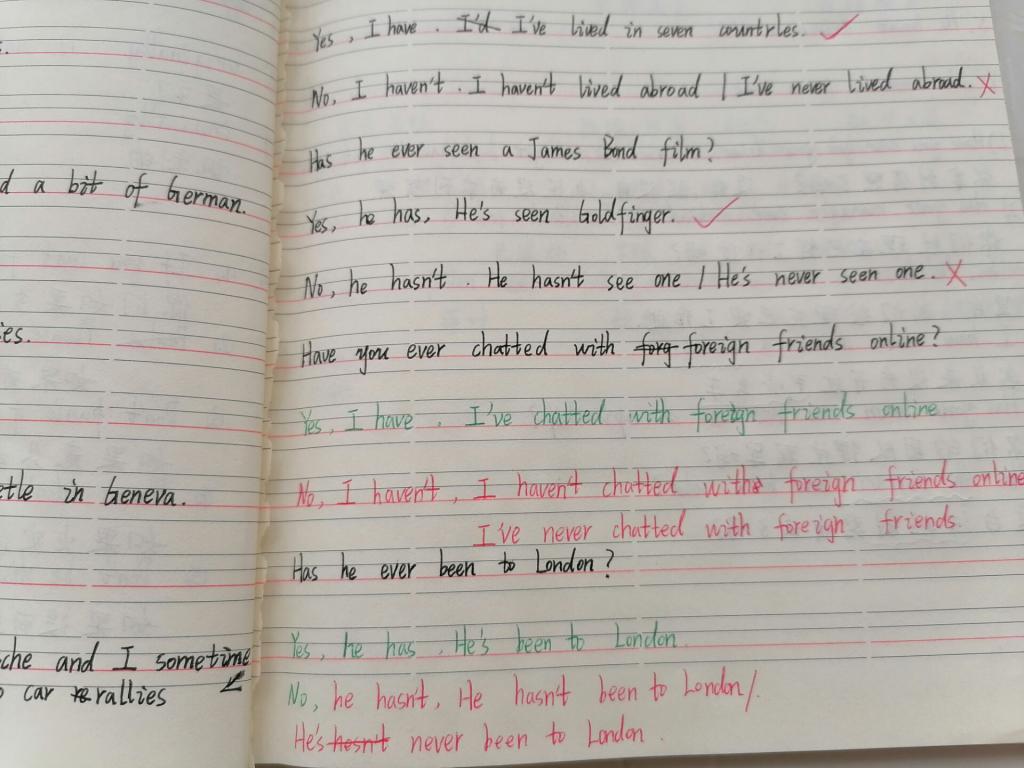 Yes, I have. I'd I've lived in seven countrles.
No, I haven't. I haven't lived abroad / I've never lived abroad.
Has he ever seen a James Bond film?
d a bit of German.
Yes, he has, He's seen Goldfinger.
No, he hasn't. He hasn't see one / He's never seen one.
es.
Have you ever chatted with forg foreign friends online?
Yes, I have. I've chatted with foreign friends online
etle in Geneva.
No, I haven't, I haven't chatted with foreign friends online
I've never chatted with foreign friends.
Has he ever been to London?
Yes, he has. He's been to London.
che and I sometime
car rallies
No, he hasn't, He hasn't been to London/.
He's hasn't never been to London.